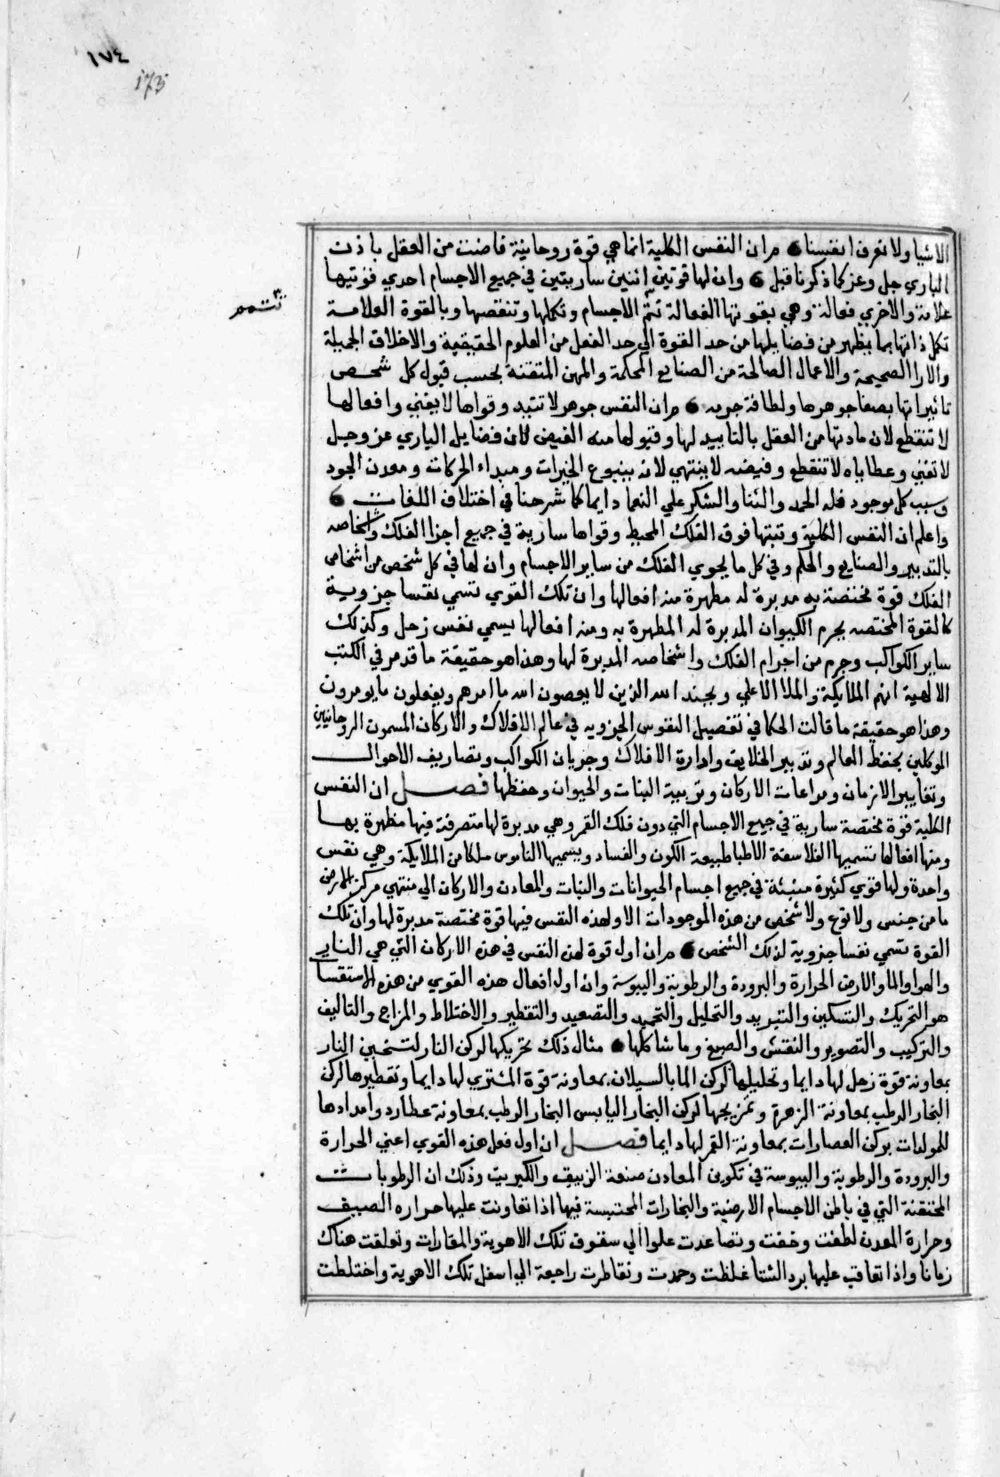 ١٧٤
173
الاشيا ولا نعرف انفسنا ثم ان النفس الكلية انما هي قوة روحانية فاضت من العقل باذن
الباري جل وعز كما ذكرنا قبل وان لها قوتين اثنين ساريتين في جميع الاجسام احدي قوتيها
علامة والاخري فعالة وهي بقوتها الفعالة تتم الاجسام وتكملها وتنقصها وبالقوة العلامة
تتمم
تكمل ذاتها بما يظهر من فضايلها من حد القوة الي حد الفعل من العلوم الحقيقية والاخلاق الجميلة
والارا الصحيحة والاعمال الصالحة من الصنايع المحكمة والمهن المتقنة بحسب قبول كل شخص
تاثيراتها بصفا جوهرها ولطافة جرمه ثم ان النفس جوهر لا تبيد وقواها لا يفني وافعالها
لا تنقطع لان مادتها من العقل بالتاييد لها وقبولها منه الفيض لان فضايل الباري عز وجل
لا تفني وعطاياه لا تنقطع وفيضه لا ينتهي لانه ينبوع الخيرات ومبداء الحركات ومعدن الجود
وسبب كل موجود فله الحمد والثنا والشكر علي النعما دايما كما شرحنا في اختلاف اللغات
واعلم ان النفس الكلية رتبتها فوق الفلك المحيط وقواها سارية في جميع اجزا الفلك واشخاصه
بالتدبير والصنايع والحكم وفي كل ما يحوي الفلك من ساير الاجسام وان لها في كل شخص من اشخاص
الفلك قوة مختصة به مدبرة له مظهرة منه افعالها وان تلك القوي تسمي نفسا جزوية
كالقوة المختصه بجرم الكيوان المدبرة له المظهرة به ومنه افعالها يسمي نفس زحل وكذلك
ساير الكواكب وجرم من اجرام الفلك واشخاصه المدبرة لها وهذا هو حقيقة ما قد مر في الكتب
الالهية انهم الملايكة والملا الاعلي وبجند الله الذين لا يعصون الله ما امرهم ويفعلون ما يومرون
وهذا هو حقيقة ما قالت الحكما في تفصيل النفوس الجزويه في عالم الافلاك والاركان المسمون الروحانيين
الموكلين بحفظ العالم وتدبير الخلايق وادارة الافلاك وجريان الكواكب وتصاريف الاحوال
وتغايير الازمان ومراعات الاركان وتربية النبات والحيوان وحفظها فصل ان النفس
الكلية قوة مختصة سارية في جميع الاجسام التي دون فلك القمر وهي مدبرة لها متصرفة فيها مظهرة بها
ومنها افعالها تسميها الفلاسفة الاطبا طبيعة الكون والفساد ويسميها الناموس ملكا من الملايكة وهي نفس
واحدة ولها قوي كثيرة منبثة في جميع اجسام الحيوانات والنبات والمعادن والاركان الي منتهي مركز الارض
ما من جنس ولا نوع ولا شخص من هذه الموجودات الا ولهذه النفس فيها قوة مختصة مدبرة لها وان تلك
القوة تسمي نفسا جزوية لذلك الشخص ثم ان اول قوة لهذه النفس في هذه الاركان التي هي النار
والهوا والما والارض الحرارة والبرودة والرطوبة واليبوسة وان اول افعال هذه القوي من هذه الاستقسا
هو التحريك والتسكين والتبريد والتحليل والتجميد والتصعيد والتقطير والاختلاط والمزاج والتاليف
والتركيب والتصوير والنقش والصبغ وما شاكلها مثال ذلك تحريكها لركن النار لتسخين النار
بمعاونة قوة زحل لها دايما وتحليلها لركن الما بالسيلان بمعاونة قوة المشتري لها دايما وتقطيرها لركن
البخار الرطب بمعاونة الزهرة وتمزيجها لركن البخار اليابس البخار الرطب بمعاونة عطارد وامدادها
للمولدات بركن العصارات بمعاونة القمر لها دايما فصل ان اول فعل هذه القوي اعني الحرارة
والبرودة والرطوبة واليبوسة في تكوين المعادن صنعة الزيبق والكبريت وذلك ان الرطوبات
المحتقنة التي في باطن الاجسام الارضية والبخارات المحتبسة فيها اذا تعاونت عليها حراره الصيف
وحرارة المعدن لطفت وخفت وتصاعدت علوا الي سقوف تلك الاهوية والمغارات وتعلقت هناك
زمانا واذا تعاقب عليها برد الشتا غلظت وجمدت وتقاطرت راجعة الي اسفل تلك الاهوية واختلطت